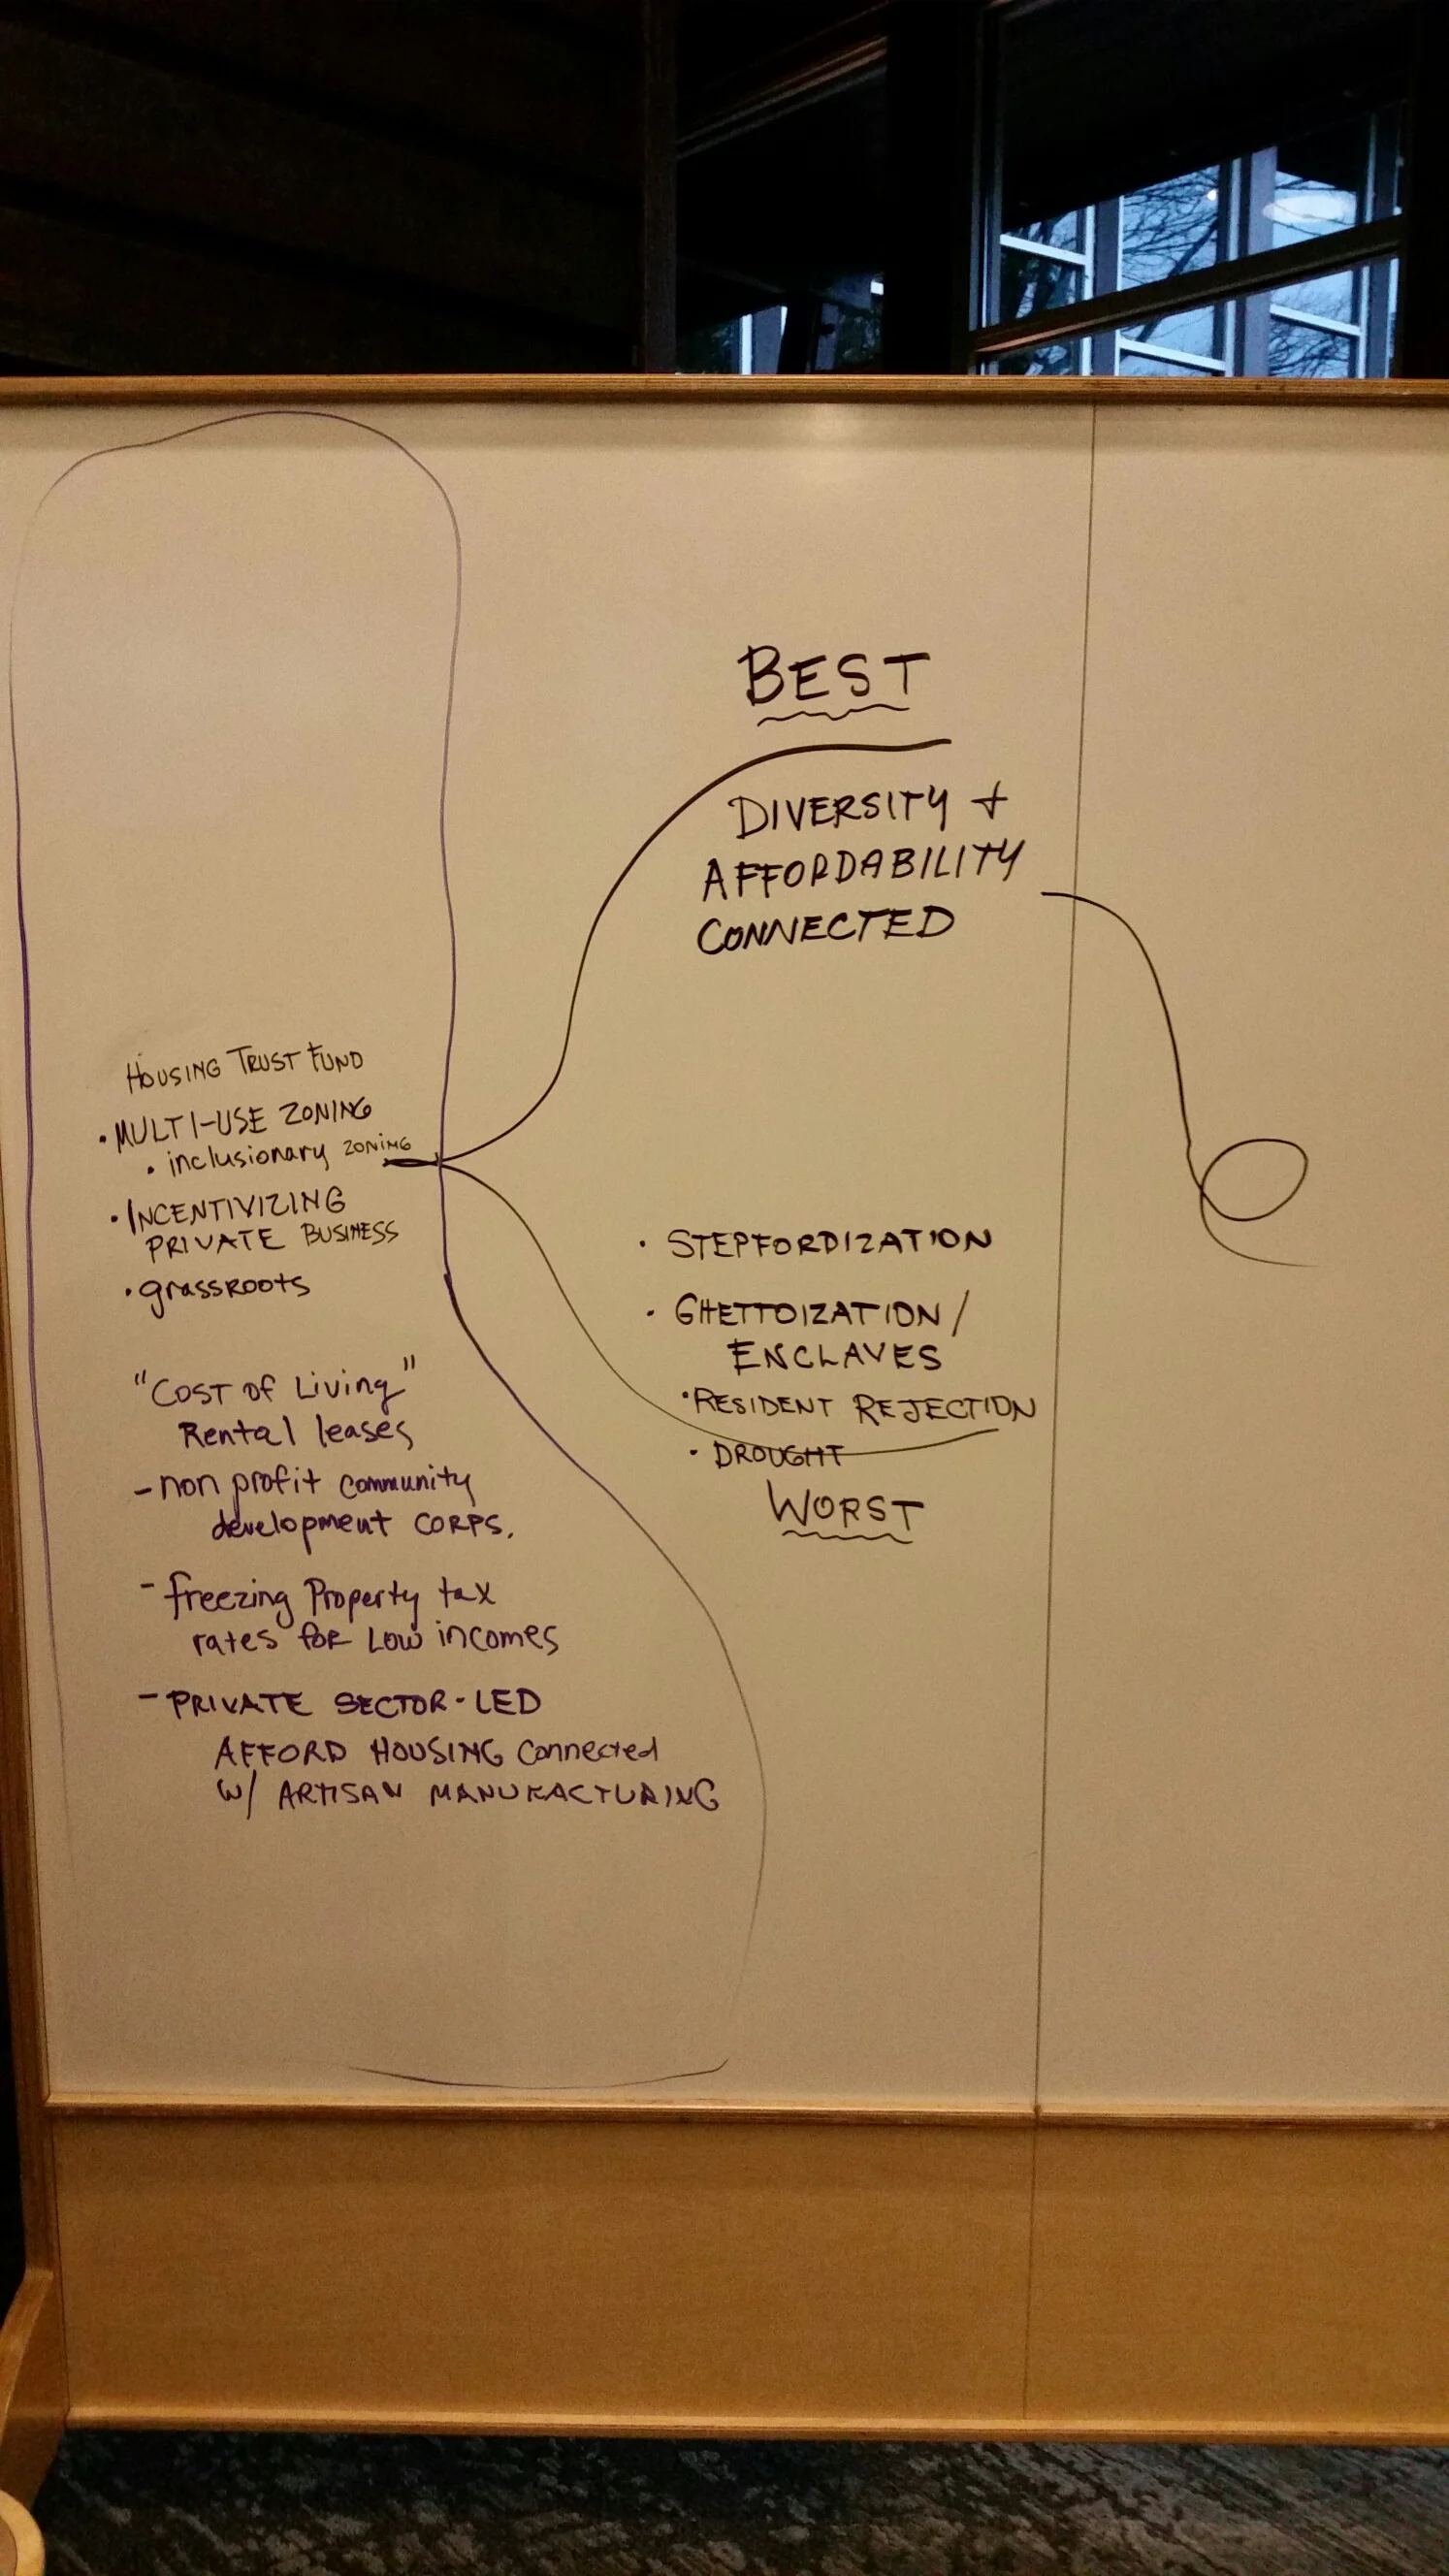 HOUSING TRUST FUND
• MULTI-USE ZONING
• inclusionary ZONING
• INCENTIVIZING
PRIVATE BUSINESS
• grassroots
"Cost of Living"
Rental leases
- non profit community
development CORPS.
- freezing Property tax
rates for Low incomes
- PRIVATE SECTOR-LED
AFFORD HOUSING Connected
W/ ARTISAN MANUFACTURING
BEST
DIVERSITY +
AFFORDABILITY
CONNECTED
• STEPFORDIZATION
• GHETTOIZATION /
ENCLAVES
• RESIDENT REJECTION
• DROUGHT
WORST